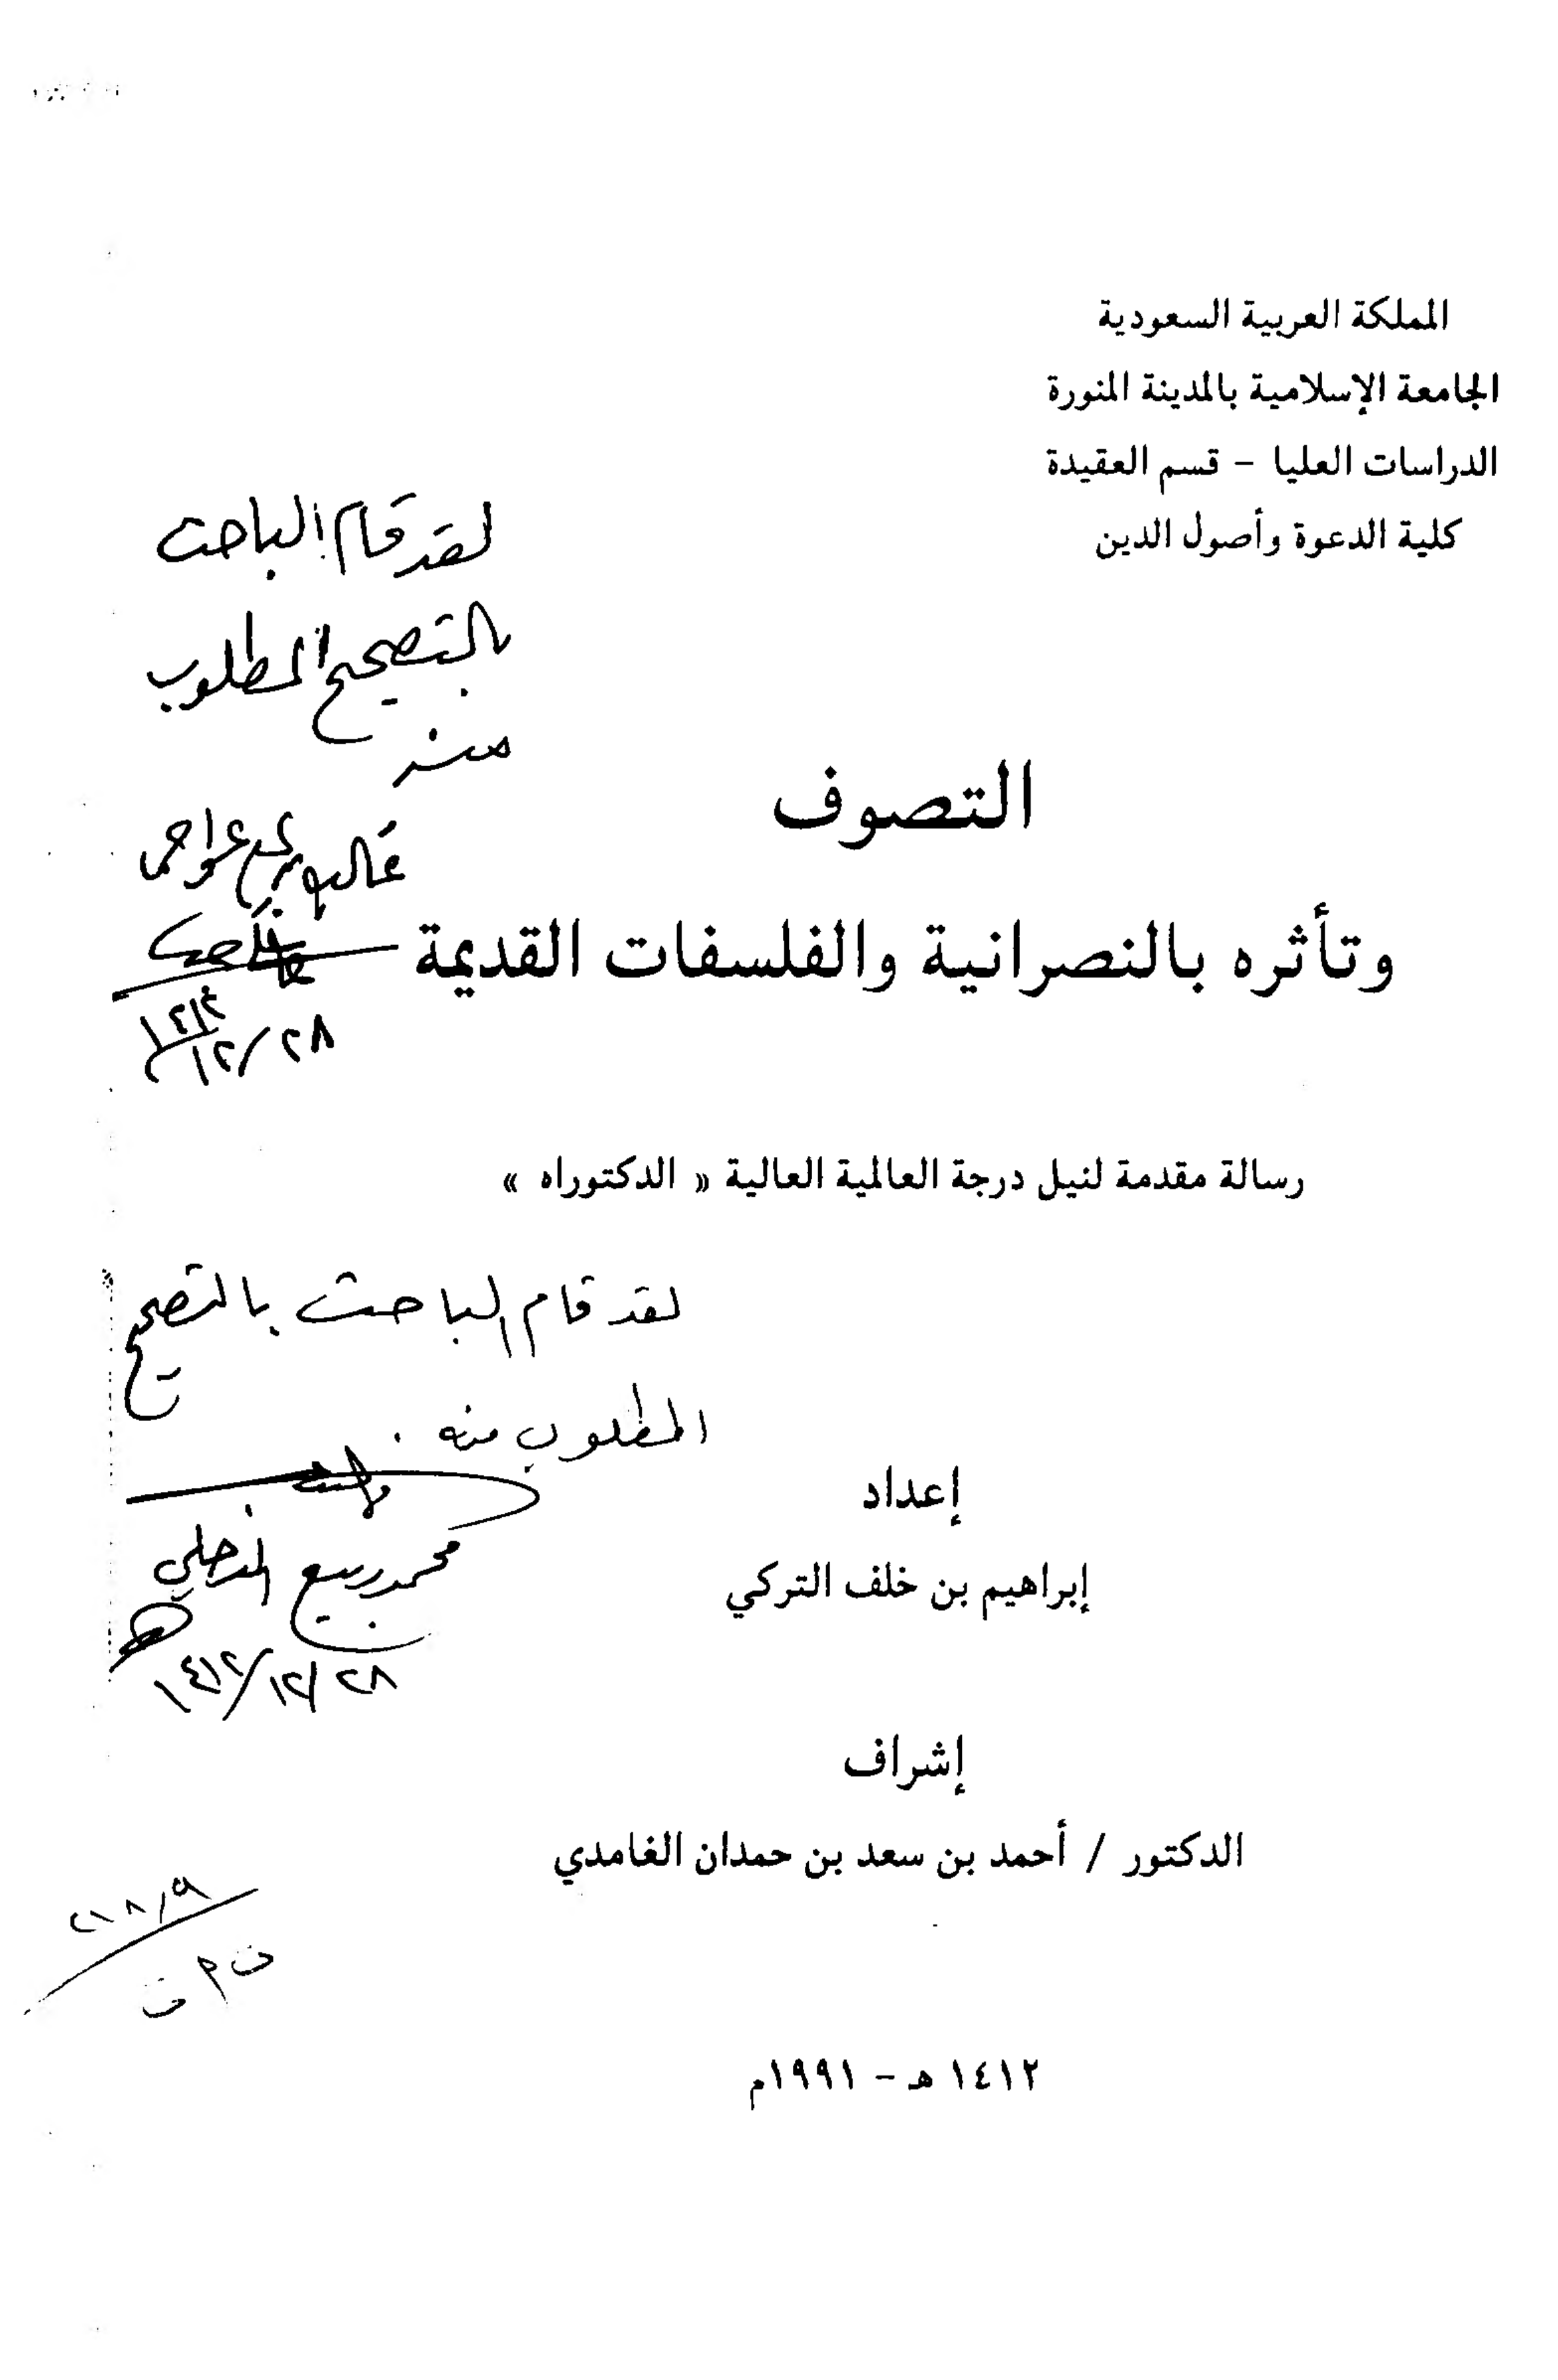 المملكة العربية السعودية
الجامعة الإسلامية بالمدينة المنورة
الدراسات العليا - قسم العقيدة
كلية الدعوة وأصول الدين
لقد قام الباحث
بالتصحيح المطلوب
منه
التصوف
وتأثره بالنصرانية والفلسفات القديمة
٢٨/١٢/١٤١٢
رسالة مقدمة لنيل درجة العالمية العالية « الدكتوراه »
لقد قام الباحث بالتصحيح
المطلوب منه .
إعداد
محمد ربيع المدخلي
إبراهيم بن خلف التركي
٢٨/١٢/١٤١٢
إشراف
الدكتور / أحمد بن سعد بن حمدان الغامدي
١٤١٢ هـ - ١٩٩١م